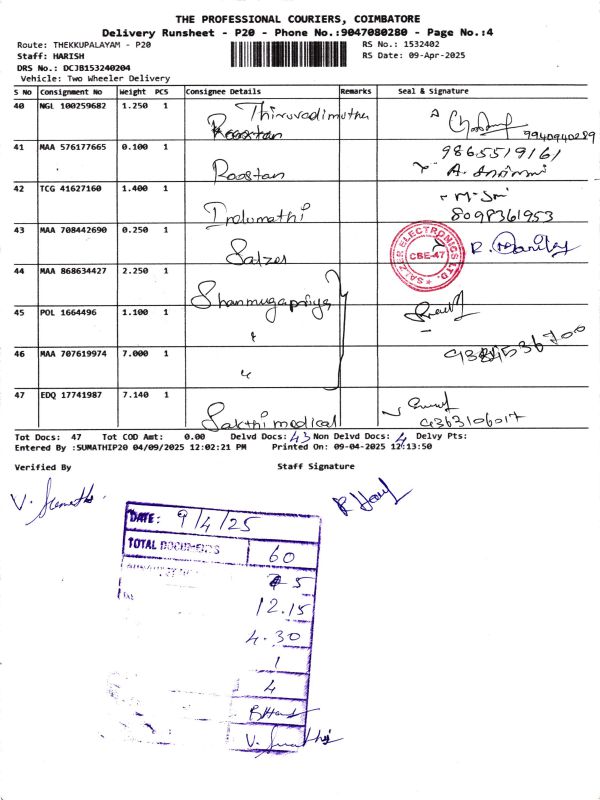 THE PROFESSIONAL COURIERS, COIMBATORE
Delivery Runsheet - P20 - Phone No.:9047080280 - Page No.:4
Route: THEKKUPALAYAM - P20
RS No.: 1532402
Staff: HARISH
RS Date: 09-Apr-2025
DRS No.: DCJB153240204
Vehicle: Two Wheeler Delivery
S No Consignment No Weight PCS Consignee Details Remarks Seal & Signature
40 NGL 100259682 1.250 1 Thiruvadimuthu
Roostan 9940940289
41 MAA 576177665 0.100 1 Roostan 9865519161
42 TCG 41627160 1.400 1 Indumathi M. Sri
8098361953
43 MAA 708442690 0.250 1 Salzer SALZER ELECTRONICS LTD. CBE-47
44 MAA 868634427 2.250 1 Shanmugapriya
45 POL 1664496 1.100 1 "
46 MAA 707619974 7.000 1 "
47 EDQ 17741987 7.140 1 Sakthi medical 9363106017
Tot Docs: 47 Tot COD Amt: 0.00 Delvd Docs: 43 Non Delvd Docs: 4 Delvy Pts:
Entered By :SUMATHIP20 04/09/2025 12:02:21 PM Printed On: 09-04-2025 12:13:50
Verified By Staff Signature
V. Sumathi
DATE: 9/4/25
TOTAL DOCUMENTS 60
5
12.15
4.30
1
4
V. Sumathi